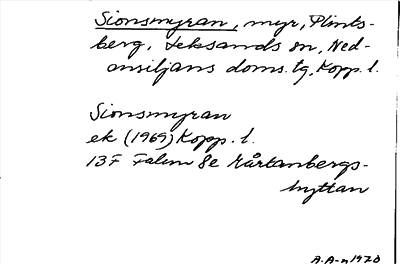 Sionsmyran, myr, Plints-
berg, Leksands sn, Ned-
ansiljans doms.tg, Kopp. l.
Sionsmyran
ek (1969) Kopp. l.
13F Falun 8e Mårtanbergs-
hyttan
A.A-n 1970